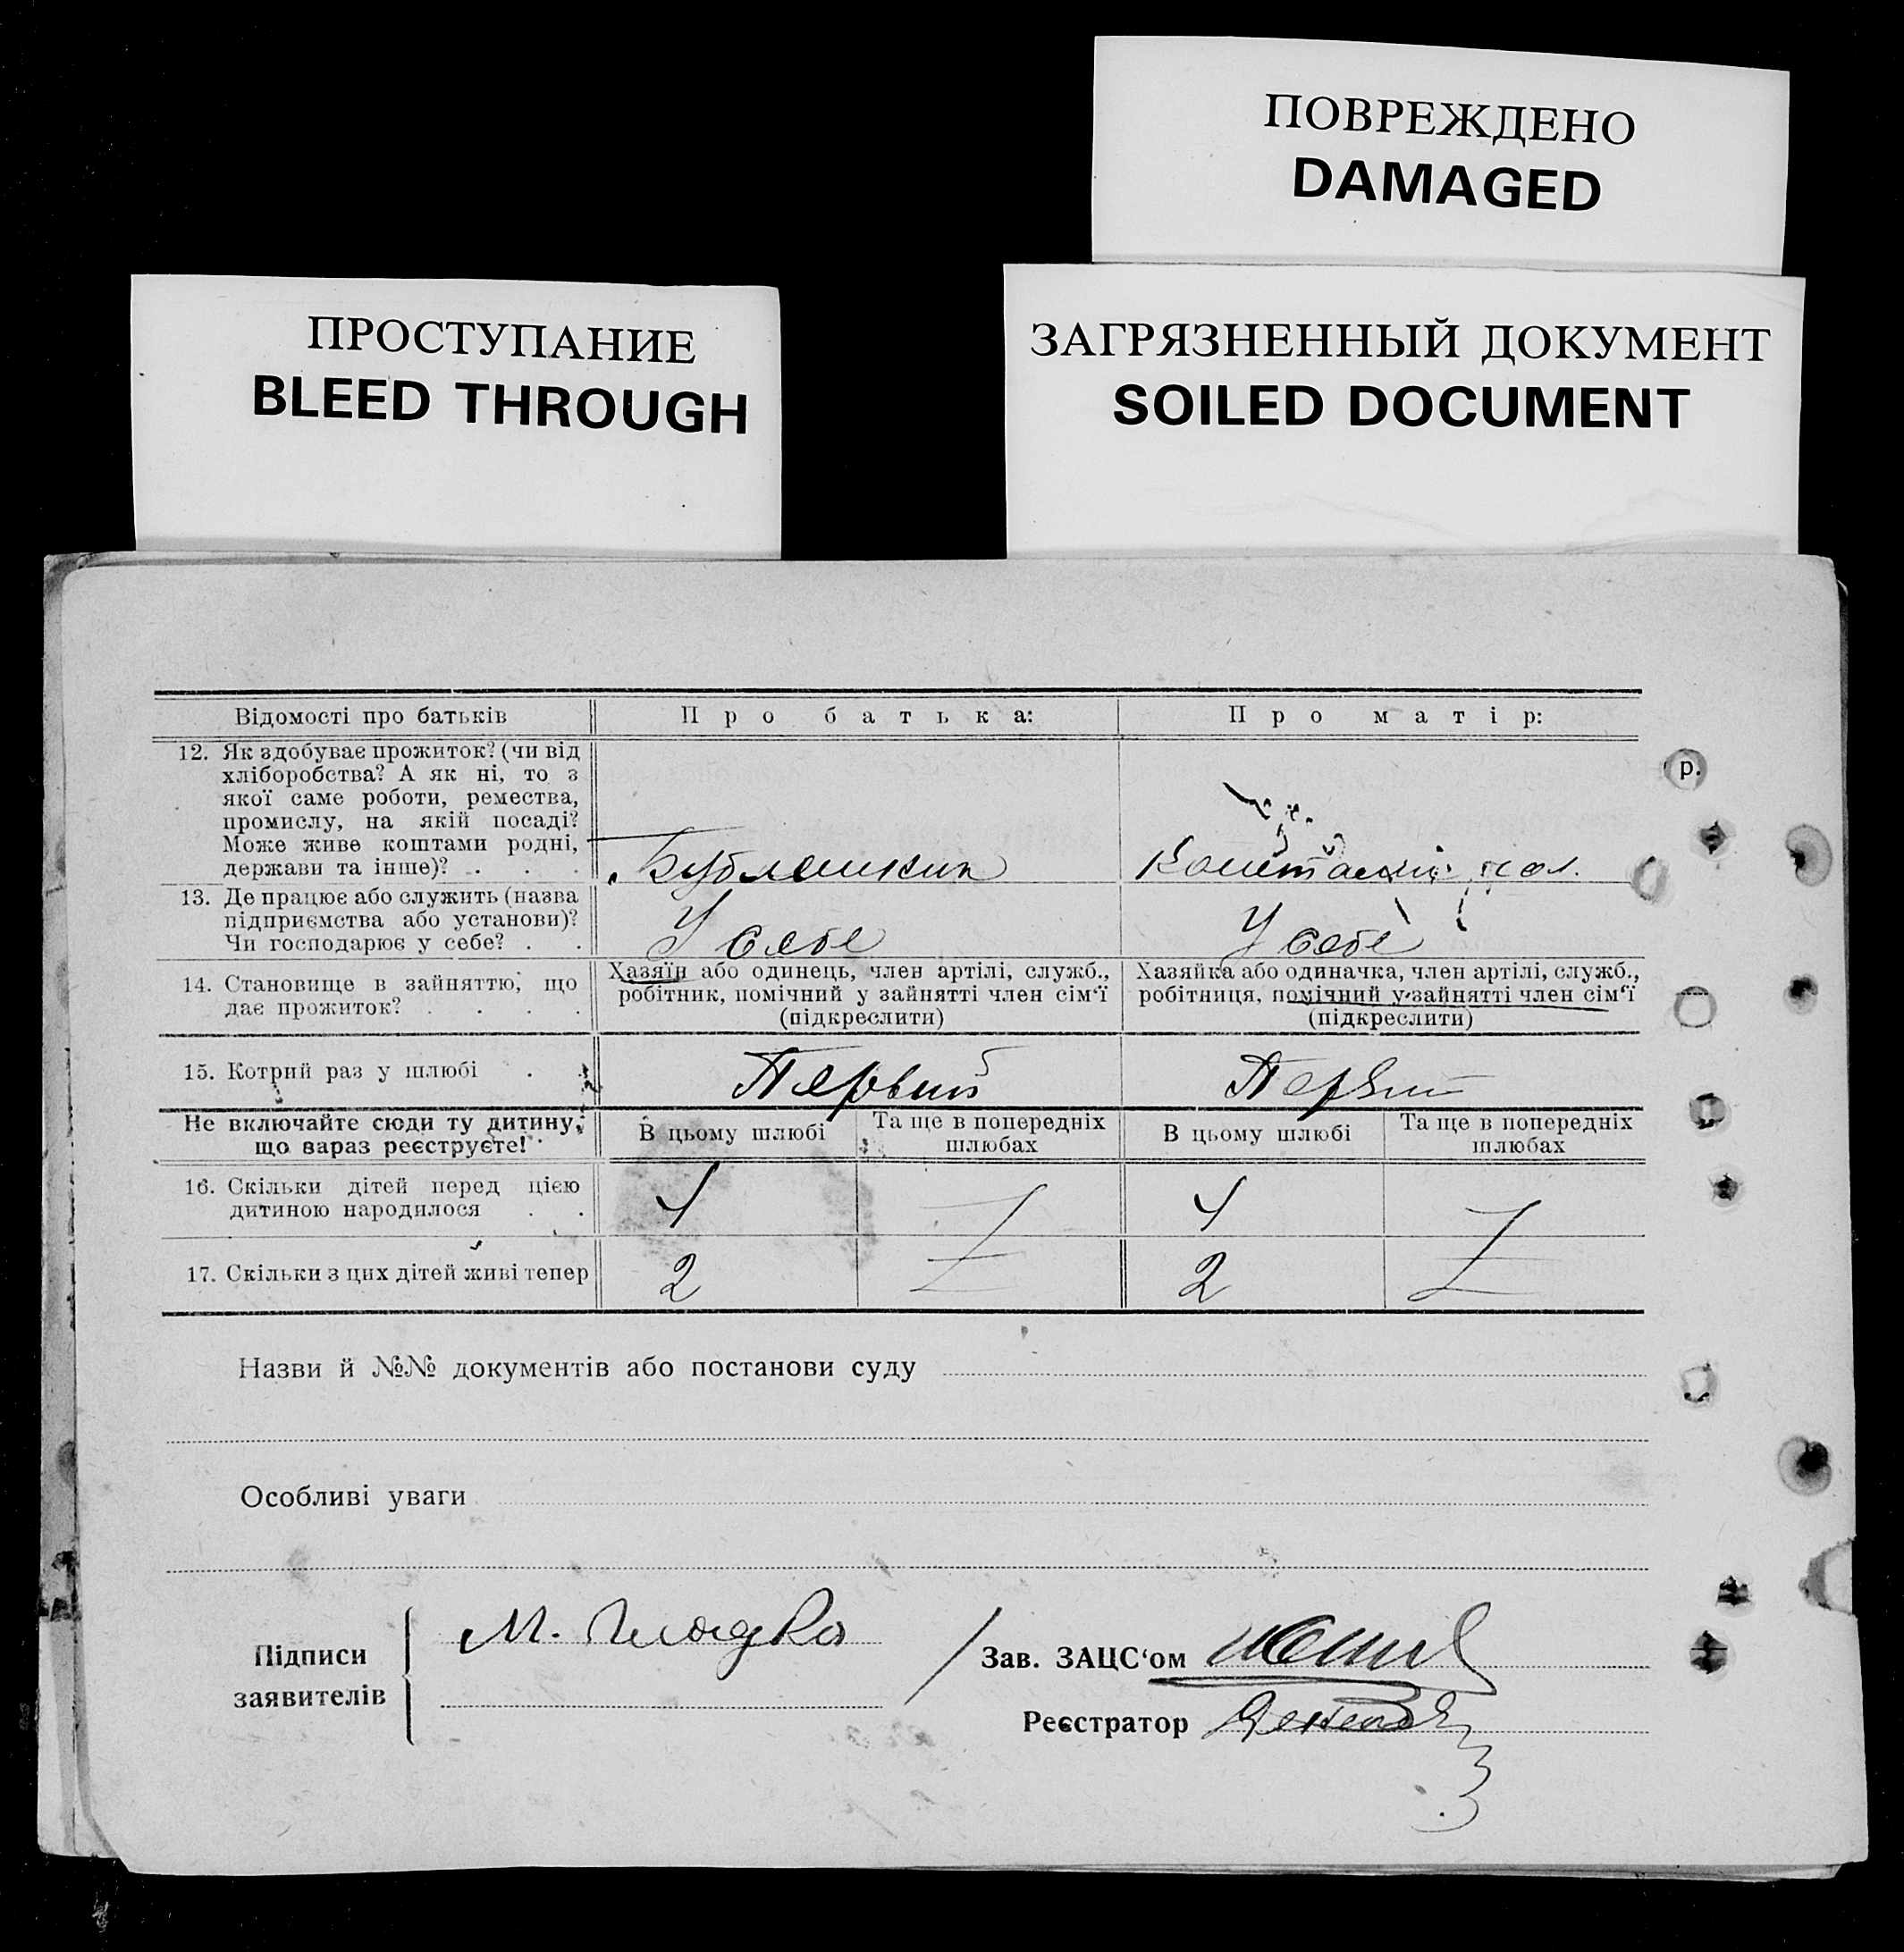 ПОВРЕЖДЕНО
DAMAGED
ПРОСТУПАНИЕ
BLEED THROUGH
ЗАГРЯЗНЕННЫЙ ДОКУМЕНТ
SOILED DOCUMENT
Відомості про батьків
Про батька:
Про матір:
12. Як здобуває прожиток? (чи від
хліборобства? А як ні, то з
якої саме роботи, ремества,
промислу, на якій посаді?
Може живе коштами родні,
держави та інше)? . . .
Бубличник
Коштами чол.
13. Де працює або служить (назва
підприємства або установи)?
Чи господарює у себе? . .
У себе
У себе
14. Становище в зайняттю, що
дає прожиток? . . . .
Хазяїн або одинець, член артілі, служб.,
робітник, помічний у зайнятті член сім‘ї
(підкреслити)
Хазяйка або одиначка, член артілі, служб.,
робітниця, помічний у зайнятті член сім‘ї
(підкреслити)
15. Котрий раз у шлюбі . .
Первий
Первий
Не включайте сюди ту дитину,
що зараз реєструєте!
В цьому шлюбі
Та ще в попередніх
шлюбах
В цьому шлюбі
Та ще в попередніх
шлюбах
16. Скільки дітей перед цією
дитиною народилося . .
4
4
17. Скільки з цих дітей живі тепер
2
2
р.
Назви й №№ документів або постанови суду
Особливі уваги
Підписи
заявителів
М.
Зав. ЗАЦС‘ом
Реєстратор